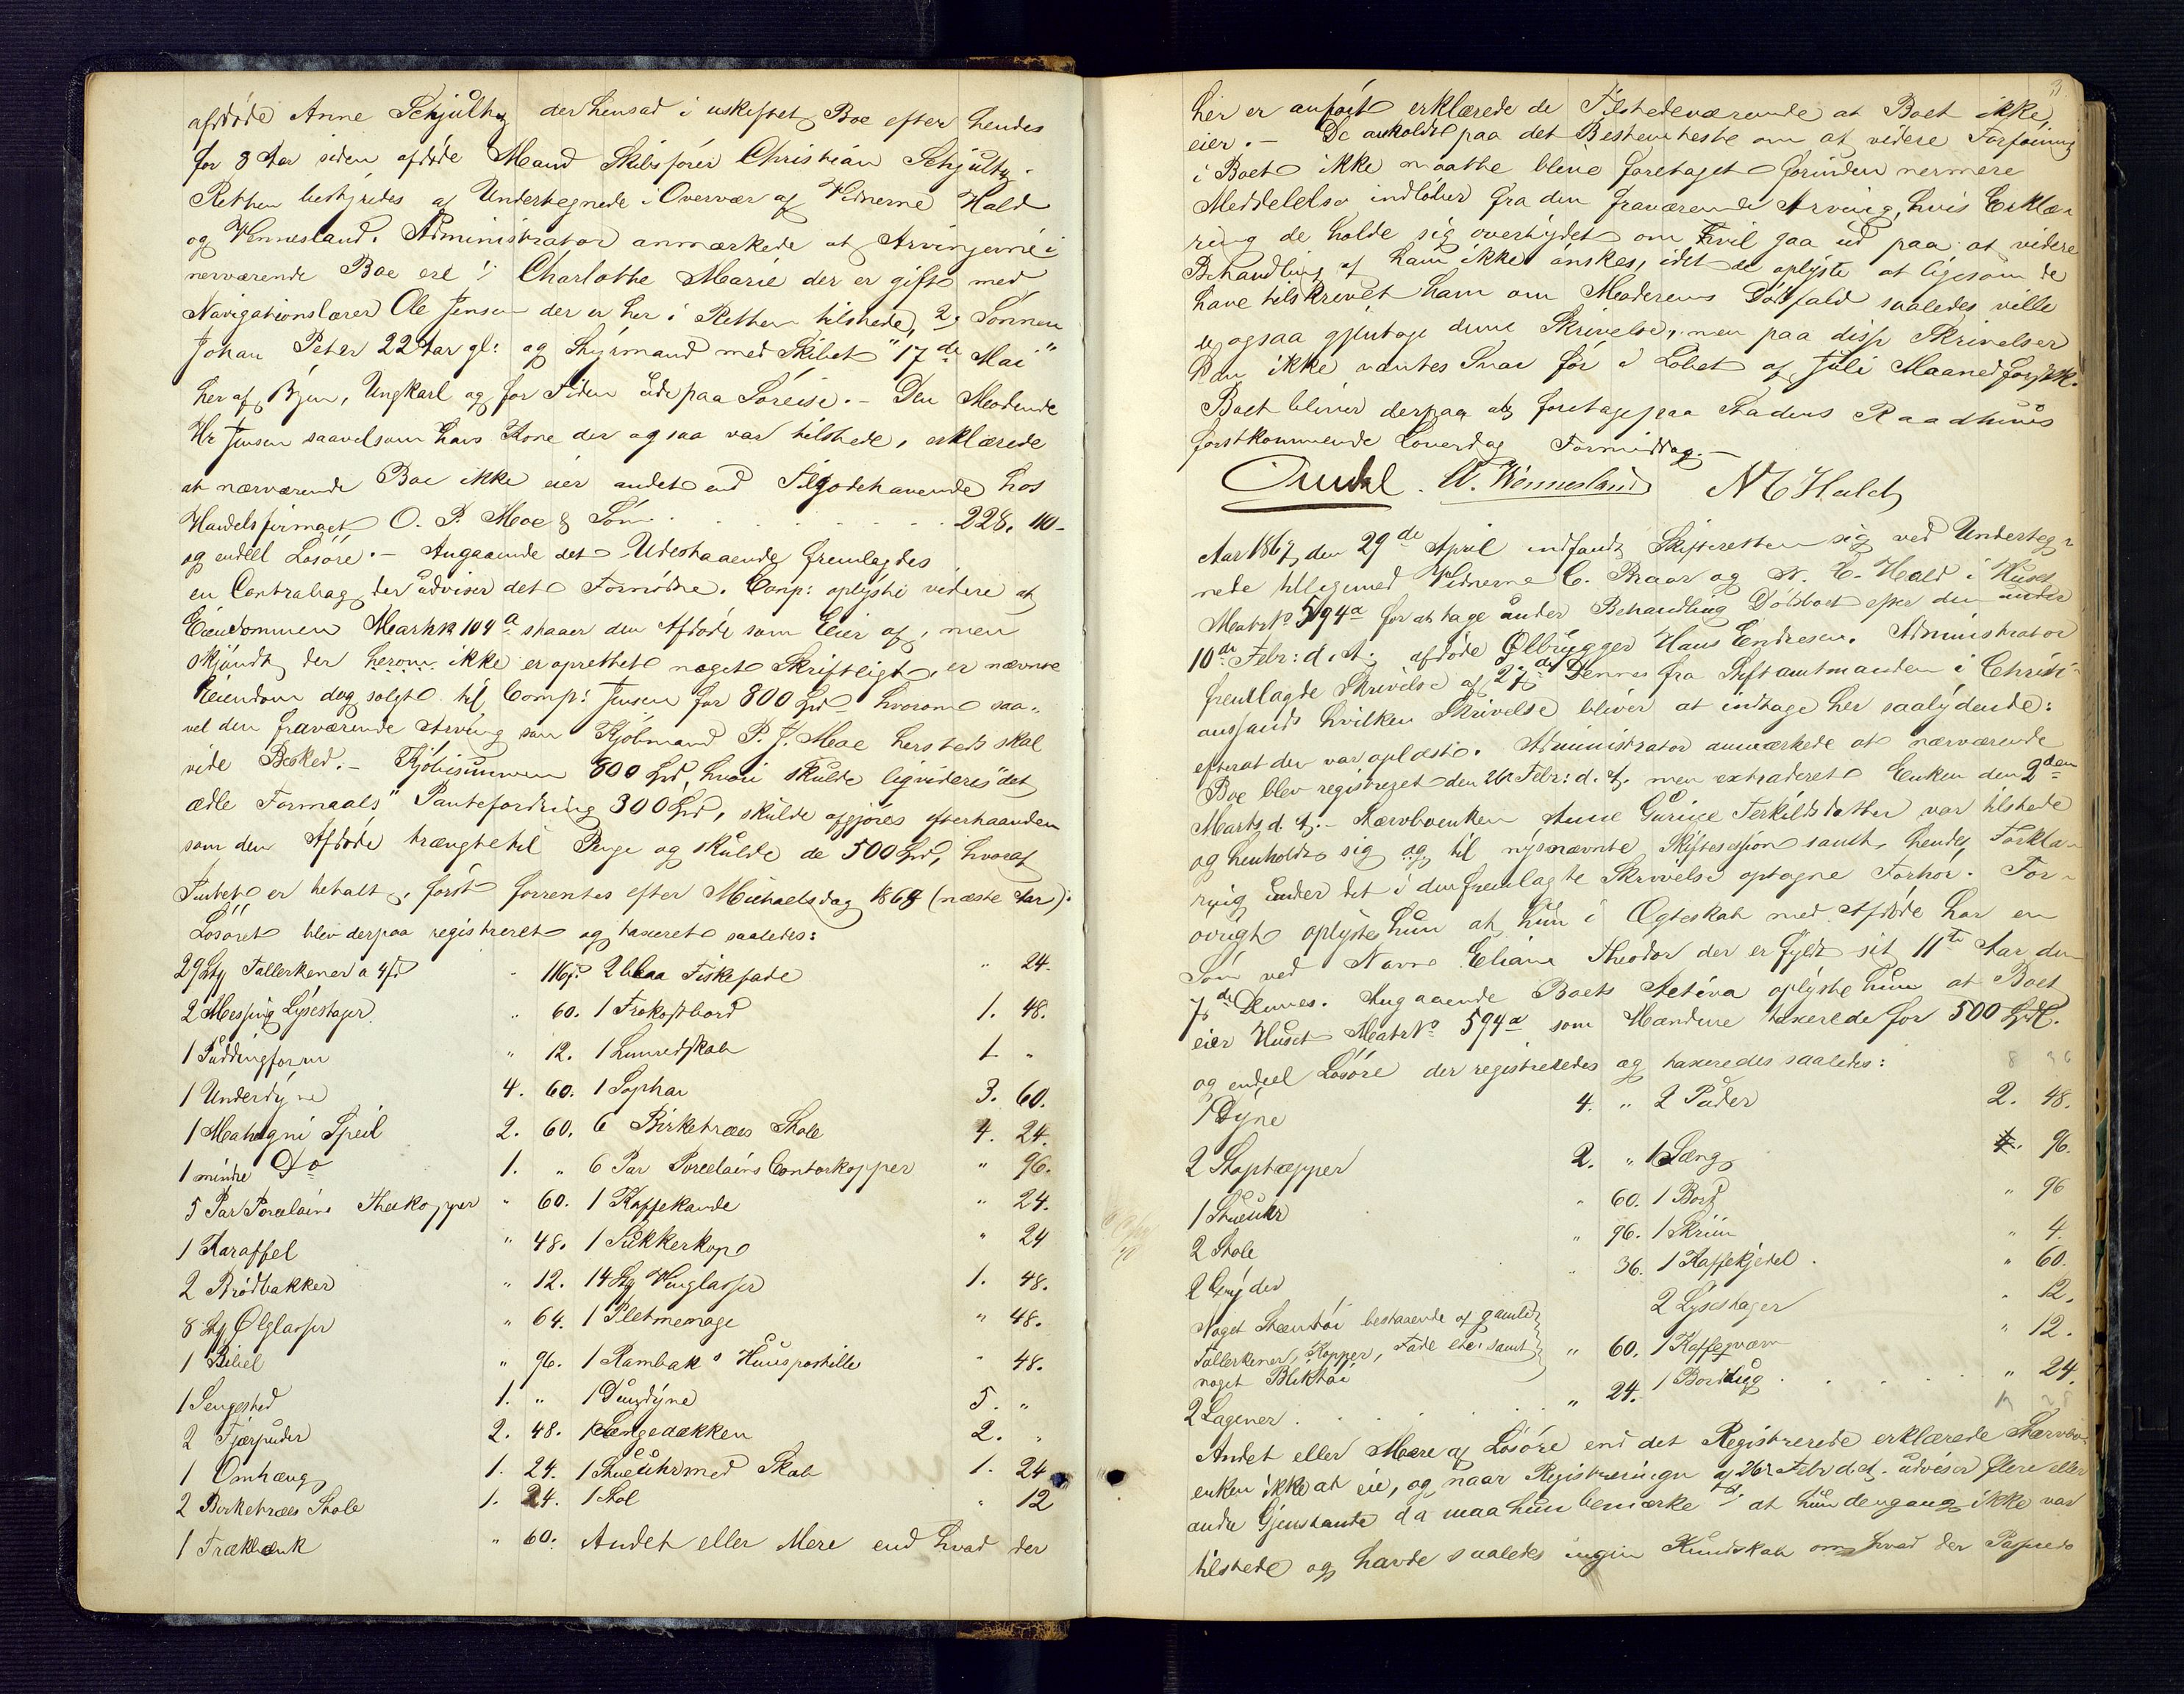 afdøde Anne Schjultz der hensad i uskiftet Boe efter hendes
for 8 Aar siden afdøde Mand Skibsfører Christian Schjultz.
Retten bestyredes af Undertegnede i Overvær af Vidnerne Hald
og Vennesland. Administrator anmærkede at Arvingerne i
nerværende Boe ere 1, Charlotte Marie der er gift med
Navigationslærer Ole Jensen der er her i Retten tilstede, 2, Sønnen
Johan Peter 22 Aar gl: og Styrmand med Skibet "17de Mai"
her af Byen, Ungkarl og for Tiden ude paa Søreise. - Den Mødende
Hr Jensen saavelsom hans Kone der ogsaa var tilstede, erklærede
at nærværende Boe ikke eier andet end Tilgodehavende hos
Handelsfirmaet O. P. Moe & Søn . . . . 228. 110-
og endeel Løsøre. - Angaaende det Udestaaende fremlagdes
en Contrabog der udviser det Fornødne. Comp: oplyste videre at
Eiendommen Matr № 104a staaer den Afdøde som Eier af, men
skjøndt der herom ikke er oprettet noget Skriftligt, er nævnte
Eiendom dog solgt til Comp: Jensen for 800 Spd hvorom saa-
vel den fraværende Arving som Kjøbmand P. J. Moe hersteds skal
vide Besked. - Kjøbesummen 800 Spd, hvori skulde liqvideres "det
ædle Formaals" Pantefordring 300 Spd, skulde afgjøres efterhaanden
som den Afdøde trængte til Penge og skulde de 500 Spd, hvoraf
Intet er betalt, først forrentes efter Michaelsdag 1868 (næste Aar).
Løsøret blev derpaa registreret og taxeret saaledes:
29 Stk Tallerkener a 4 s " 116 s 2 blaa Fiskefade " 24.
2 Messing Lysestager " 60. 1 Frokostbord 1. 48.
1 Puddingform " 12. 1 Linnedskab 1 "
1 Underdyne 4. 60. 1 Sopha 3. 60.
1 Mahogni Speil 2. 60. 6 Birketræes Stole 4. 24.
1 mindre Do 1. " 6 Par Porcelains Contorkopper " 96.
5 Par Porcelains Theekopper " 60. 1 Kaffekande " 24.
1 Karaffel " 48. 1 Sukkerkop " 24
2 Brødbakker " 12. 14 Stk Vinglasser 1. 48.
8 Stk Ølglasser " 64. 1 Pletmenage " 48.
1 Bibel " 96. 1 Rambak's Huuspostille " 48.
1 Sengested 1. " 1 Duundyne 5. "
2 Fjærpuder 2. 48. 1 Sengedækken 2. "
1 Omhæng 1. 24. 1 Stueuhr med Skab 1. 24
2 Birketræes Stole 1. 24. 1 Stol " 12
1 Trækbænk " 60. Andet eller Mere end hvad der
3
her er anført erklærede de Tilstedeværende at Boet ikke
eier. - De anholdte paa det Bestemteste om at videre Forføining
i Boet ikke maatte blive foretaget forinden nermere
Meddelelse indløber fra den fraværende Arving, hvis Erklæ-
ring de holde sig overtydet om vil gaa ud paa at videre
Behandling af ham ikke ønskes, idet de oplyste at ligesom de
have tilskrevet ham om Moderens Dødsfald saaledes ville
de ogsaa gjentage denne Skrivelse, men paa disse Skrivelser
kan ikke ventes Svar før i Løbet af Juli Maaned førstk.
Boet bliver derpaa at foretage paa Stadens Raadhuus
førstkommende Løverdag Formiddag. -
W. Wennesland N C Hald
Aar 1867, den 29de April indfandt Skifteretten sig ved Underteg-
nede tilligemed Vidnerne C. Braar og N. C. Hald i Huset
Matr № 594a for at tage under Behandling Dødsboet efter den under
10de Febr: d. A. afdøde Ølbrygger Hans Endresen. Administrator
fremlagde Skrivelse af 27de Dennes fra Stiftamtmanden i Christi-
ansands hvilken Skrivelse bliver at indtage her saalydende:
efterat den var oplæst. Administrator anmærkede at nærværende
Boe blev registreret den 26 Febr: d. A. men extraderet Enken den 2den
Marts d. A. - Stervboenken Anne Gurine Terkildsdatter var tilstede
og henholdt sig og til nysnævnte Skiftesession samt hendes Forkla-
ring under det i den fremlagte Skrivelse optagne Forhør. For-
øvrigt oplyste hun at hun i Ægteskab med Afdøde har en
Søn ved Navn Elianus Theodor der er fyldt sit 11te Aar den
7de Dennes. Angaaende Boets Activa oplyste hun at Boet
eier Huset Matr № 594a som Mændene taxerede for 500 Spd.
og endeel Løsøre der registreredes og taxeredes saaledes:
1 Dyne 4. " 2 Puder 2. 48.
2 Stoptæpper 2. " 1 Seng 96.
1 Stueuhr " 60. 1 Bord " 96
2 Stole " 96. 1 Skriin " 4.
2 Gryder " 36. 1 Kaffekjedel . " 60.
Noget Steentøi bestaaende af gamle 2 Lysestager " 12.
Tallerkener, Kopper, Fade etc. samt " 60. 1 Kaffeqværn " 12.
noget Bliktøi
2 Lagener . . . . " 24. 1 Borddug . . . . " 24.
Andet eller Mere af Løsøre end det Registrerede erklærede Stervbo-
enken ikke at eie, og naar Registreringen af 26 Febr d. A. udviser flere eller
andre Gjenstande da maa hun bemærke at hun dengang ikke var
tilstede og havde saaledes ingen Kundskab om hvad der Passerede